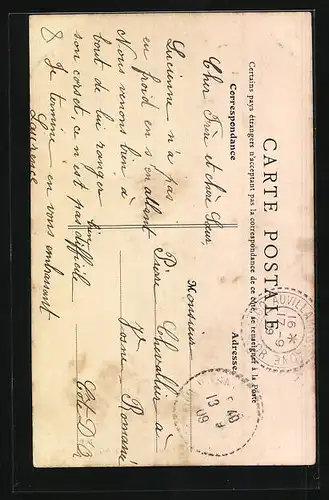 CARTE POSTALE
Certains pays étrangers n'acceptant pas la correspondance de ce côté, se renseigner à la Poste
Correspondance
Adresse
Cher Frère et chère Sœur
Lucienne n a pas
eu froid en s en allant
Nous venons bien à
bout de lui ranger
son corset, ce n'est pas bien difficile
& Je termine en vous embrassant
Laurence
Monsieur
Pierre Chevallier à
Vosne Romané
Côte D'Or
16 *
17-9
09
13
09